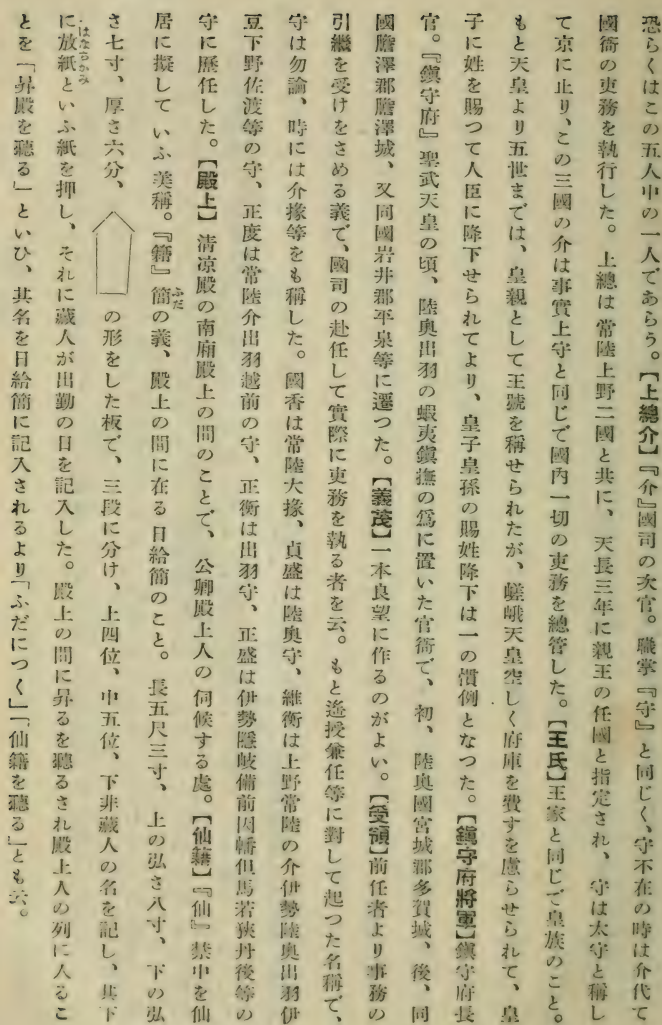 恐らくはこの五人中の一人であらう。【上總介】『介』國司の次官。職掌『守』と同じく、守不在の時は介代て
國衙の吏務を執行した。上總は常陸上野二國と共に、天長三年に親王の任國と指定され、守は太守と稱し
て京に止り、この三國の介は事實上守と同じで國内一切の吏務を總管した。【王氏】王家と同じで皇族のこと。
もと天皇より五世までは、皇親として王號を稱せられたが、嵯峨天皇空しく府庫を費すを慮らせられて、皇
子に姓を賜つて人臣に降下せられてより、皇子皇孫の賜姓降下は一の慣例となつた。【鎭守府將軍】鎭守府長
官。『鎭守府』聖武天皇の頃、陸奥出羽の蝦夷鎭撫の爲に置いた官衙で、初、陸奥國宮城郡多賀城、後、同
國膽澤郡膽澤城、又同國岩井郡平泉等に遷つた。【義茂】一本良望に作るのがよい。【受領】前任者より事務の
引繼を受けをさめる義で、國司の赴任して實際に吏務を執る者を云。もと遙授兼任等に對して起つた名稱で、
守は勿論、時には介掾等をも稱した。國香は常陸大掾、貞盛は陸奥守、維衡は上野常陸の介伊勢陸奥出羽伊
豆下野佐渡等の守、正度は常陸介出羽越前の守、正衡は出羽守、正盛は伊勢隱岐備前因幡但馬若狹丹後等の
守に歷任した。【殿上】清凉殿の南廂殿上の間のことで、公卿殿上人の伺候する處。【仙籍】『仙』禁中を仙
居に擬していふ美稱。『籍』簡の義、殿上の間に在る日給簡のこと。長五尺三寸、上の弘さ八寸、下の弘
ふだ
さ七寸、厚さ六分、の形をした板で、三段に分け、上四位、中五位、下非藏人の名を記し、其下
に放紙といふ紙を押し、それに藏人が出勤の日を記入した。殿上の間に昇るを聽るされ殿上人の列に入るこ
はなちかみ
とを「昇殿を聽る」といひ、其名を日給簡に記入されるより「ふだにつく」「仙籍を聽る」とも云。